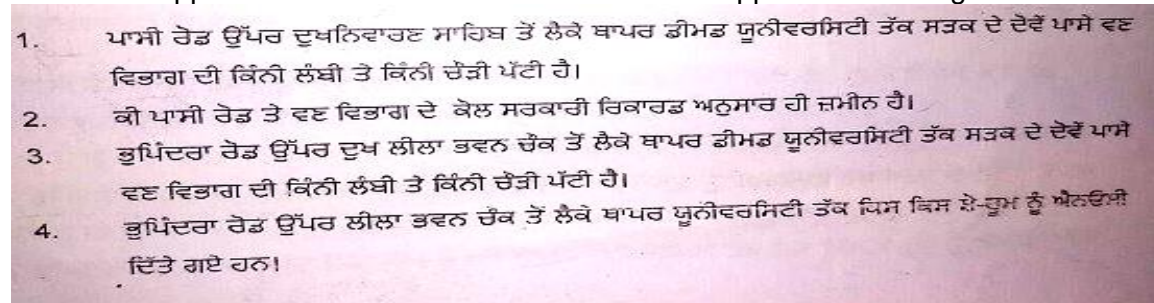 1. ਪਾਸੀ ਰੋਡ ਉੱਪਰ ਦੁਖਨਿਵਾਰਣ ਸਾਹਿਬ ਤੋਂ ਲੈਕੇ ਥਾਪਰ ਡੀਮਡ ਯੂਨੀਵਰਸਿਟੀ ਤੱਕ ਸੜਕ ਦੇ ਦੋਵੇਂ ਪਾਸੇ ਵਣ
ਵਿਭਾਗ ਦੀ ਕਿੰਨੀ ਲੰਬੀ ਤੇ ਕਿੰਨੀ ਚੌੜੀ ਪੱਟੀ ਹੈ।
2. ਕੀ ਪਾਸੀ ਰੋਡ ਤੇ ਵਣ ਵਿਭਾਗ ਦੇ ਕੋਲ ਸਰਕਾਰੀ ਰਿਕਾਰਡ ਅਨੁਸਾਰ ਹੀ ਜ਼ਮੀਨ ਹੈ।
3. ਭੁਪਿੰਦਰਾ ਰੋਡ ਉੱਪਰ ਦੁਖ ਲੀਲਾ ਭਵਨ ਚੌਕ ਤੋਂ ਲੈਕੇ ਥਾਪਰ ਡੀਮਡ ਯੂਨੀਵਰਸਿਟੀ ਤੱਕ ਸੜਕ ਦੇ ਦੋਵੇਂ ਪਾਸੇ
ਵਣ ਵਿਭਾਗ ਦੀ ਕਿੰਨੀ ਲੰਬੀ ਤੇ ਕਿੰਨੀ ਚੌੜੀ ਪੱਟੀ ਹੈ।
4. ਭੁਪਿੰਦਰਾ ਰੋਡ ਉੱਪਰ ਲੀਲਾ ਭਵਨ ਚੌਕ ਤੋਂ ਲੈਕੇ ਥਾਪਰ ਯੂਨੀਵਰਸਿਟੀ ਤੱਕ ਕਿਸ ਕਿਸ ਸ਼ੋ-ਰੂਮ ਨੂੰ ਐਨਓਸੀ
ਦਿੱਤੇ ਗਏ ਹਨ!